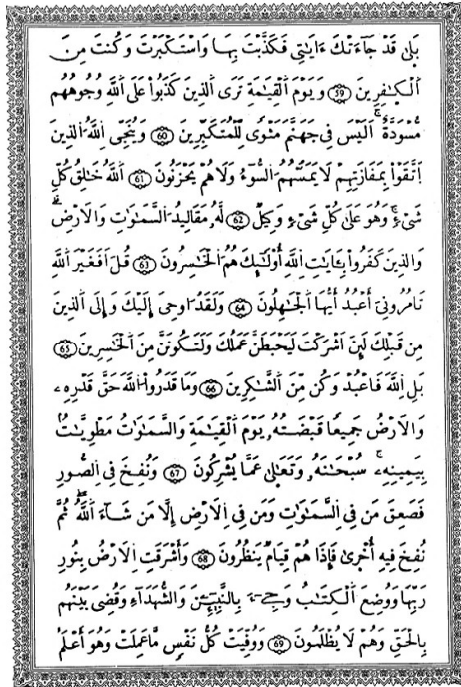 بَلَىٰ قَدْ جَآءَتْكَ ءَايَٰتِى فَكَذَّبْتَ بِهَا وَاسْتَكْبَرْتَ وَكُنتَ مِنَ
اَلْكَٰفِرِينَ 59 وَيَوْمَ اَلْقِيَٰمَةِ تَرَى اَلذِينَ كَذَبُواْ عَلَى اَللَّهِ وُجُوهُهُم
مُّسْوَدَّةٌۚ اَلَيْسَ فِى جَهَنَّمَ مَثْوًى لِّلْمُتَكَبِّرِينَ 60 وَيُنَجِّى اِللَّهُ اُلذِينَ
اَتَّقَوْاْ بِمَفَازَتِهِمْ لَا يَمَسُّهُمُ السُّوٓءُ وَلَا هُمْ يَحْزَنُونَ 61 اَللَّهُ خَٰلِقُ كُلِّ
شَىْءٍۖ وَهُوَ عَلَىٰ كُلِّ شَىْءٍ وَكِيلٌ 62 لَّهُۥ مَقَالِيدُ اُلسَّمَٰوَٰتِ وَالَارْضِۗ
وَالذِينَ كَفَرُواْ بِـَٔايَٰتِ اِللَّهِ أُوْلَٰٓئِكَ هُمُ اُلْخَٰسِرُونَ 63 قُلَ اَفَغَيْرَ اَللَّهِ
تَامُرُونِىَ أَعْبُدُ أَيُّهَا اَلْجَٰهِلُونَ 64 وَلَقَدُ ا۟وحِىَ إِلَيْكَ وَإِلَى اَلذِينَ
مِن قَبْلِكَ لَئِنَ اَشْرَكْتَ لَيَحْبَطَنَّ عَمَلُكَ وَلَتَكُونَنَّ مِنَ اَلْخَٰسِرِينَ 65
بَلِ اِللَّهَ فَاعْبُدْ وَكُن مِّنَ اَلشَّٰكِرِينَ 66 وَمَا قَدَرُواْ اُللَّهَ حَقَّ قَدْرِهِۦ
وَالَارْضُ جَمِيعًا قَبْضَتُهُۥ يَوْمَ اَلْقِيَٰمَةِ وَالسَّمَٰوَٰتُ مَطْوِيَّٰتُۢ
بِيَمِينِهِۦۚ سُبْحَٰنَهُۥ وَتَعَٰلَىٰ عَمَّا يُشْرِكُونَ 67 وَنُفِخَ فِى اِلصُّورِ
فَصَعِقَ مَن فِى اِلسَّمَٰوَٰتِ وَمَن فِى اِلَارْضِ إِلَّا مَن شَآءَ اَللَّهُۖ ثُمَّ
نُفِخَ فِيهِ أُخْرَىٰ فَإِذَا هُمْ قِيَامٌ يَنظُرُونَ 68 وَأَشْرَقَتِ اِلَارْضُ بِنُورِ
رَبِّهَا وَوُضِعَ اَلْكِتَٰبُ وَجِاْىٓءَ بِالنَّبِيٓـِٔينَ وَالشُّهَدَآءِ وَقُضِىَ بَيْنَهُم
بِالْحَقِّ وَهُمْ لَا يُظْلَمُونَ 69 وَوُفِّيَتْ كُلُّ نَفْسٍ مَّا عَمِلَتْ وَهُوَ أَعْلَمُ